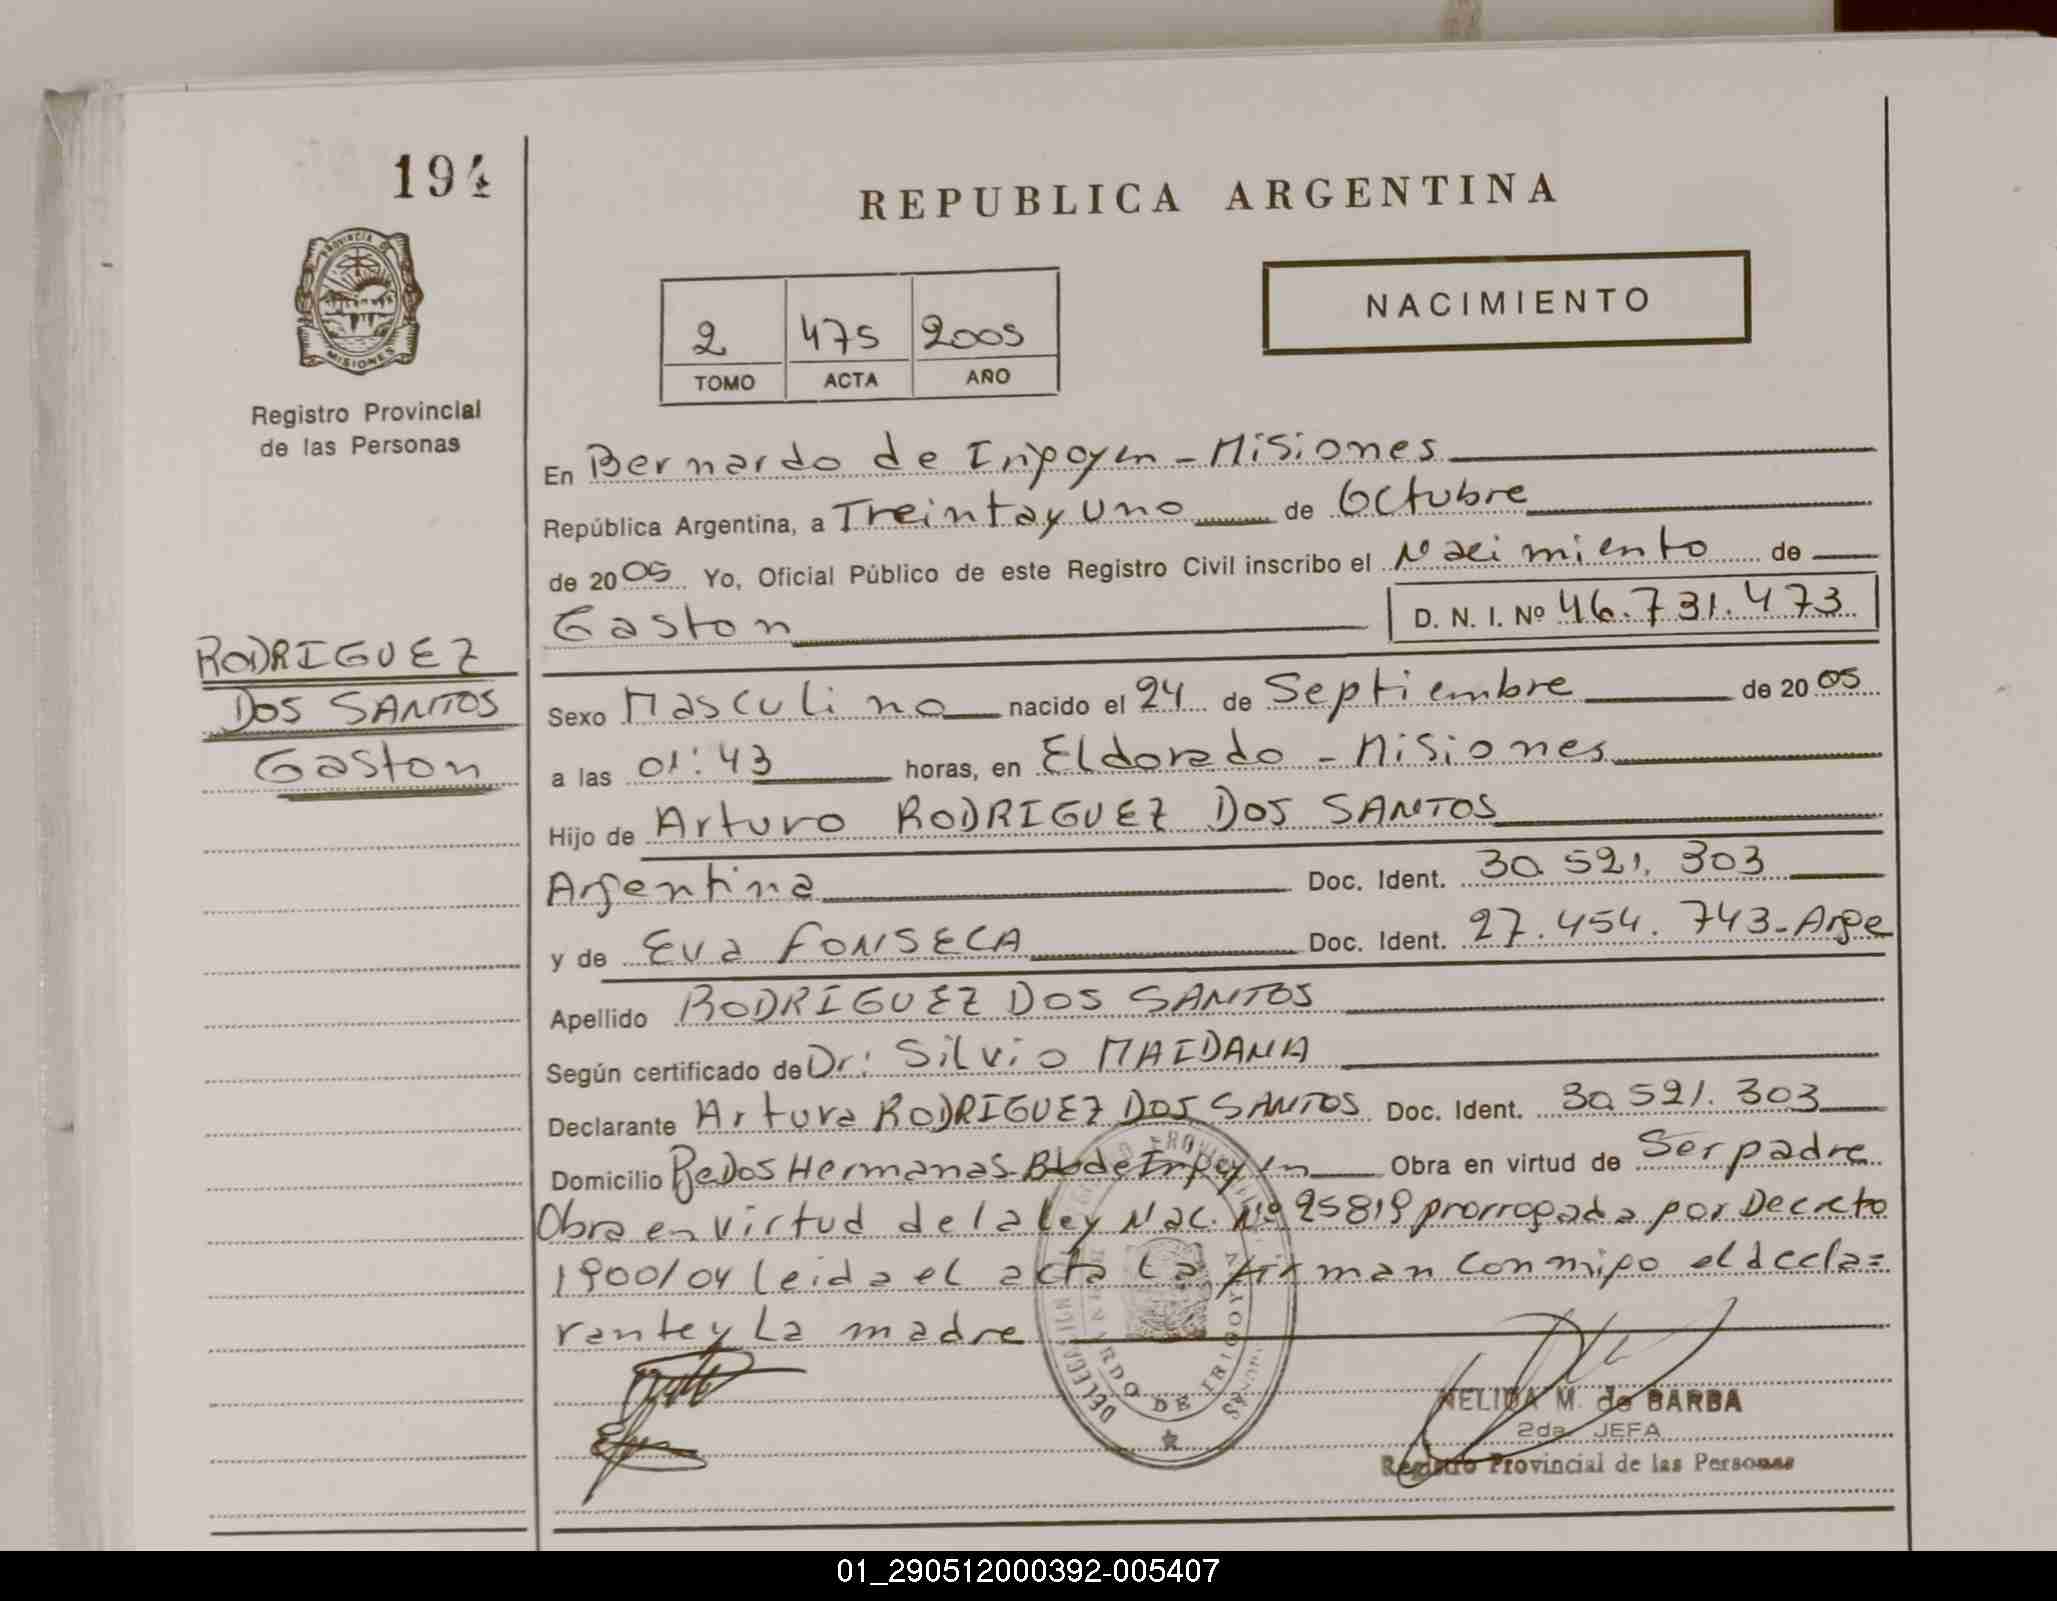 194
REPUBLICA ARGENTINA
PROVINCIA DE
MISIONES
NACIMIENTO
2 475 2005
TOMO ACTA AÑO
Registro Provincial
de las Personas
En Bernardo de Iripoyen - Misiones
República Argentina, a Treinta y uno de Octubre
de 2005 Yo, Oficial Público de este Registro Civil inscribo el Nacimiento de
Gaston D. N. I. Nº 46.731.473
RODRIGUEZ
DOS SANTOS
Gaston
Sexo Masculino nacido el 24 de Septiembre de 2005
a las 01:43 horas, en Eldorado - Misiones
Hijo de Arturo RODRIGUEZ DOS SANTOS
Argentina Doc. Ident. 30.521.303
y de Eva FONSECA Doc. Ident. 27.454.743-Arge
Apellido RODRIGUEZ DOS SANTOS
Según certificado de Dr: Silvio MAIDANA
Declarante Arturo RODRIGUEZ DOS SANTOS Doc. Ident. 30.521.303
Domicilio Dos Hermanas Bdo de Iripoyen Obra en virtud de Ser padre
Obra en virtud de la Ley Nac. Nº 25819 prorrogada por Decreto
1900/04 leida el acta la firman conmigo el decla=
rante y la madre
DELEGACION BERNARDO DE IRIGOYEN
NELIDA M. de BARBA
2da. JEFA
Registro Provincial de las Personas
01_290512000392-005407